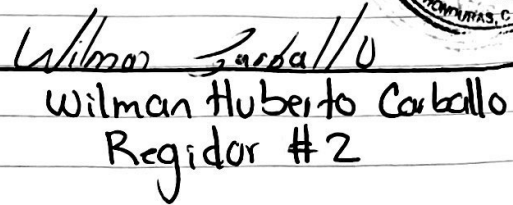 HONDURAS, C
Wilman Carballo
Wilman Huberto Carballo
Regidor #2